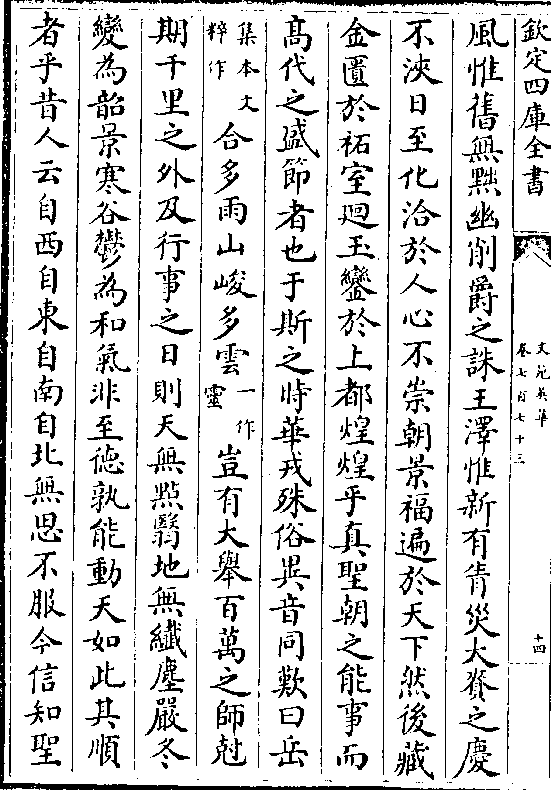 欽定四庫全書
文苑英華
卷七百七十三
十四
風惟舊無黜幽削爵之誅王澤惟新有眚災大賚之慶
不浹日至化洽於人心不崇朝景福遍於天下然後藏
金匱於祏室迴玉鑾於上都煌煌乎真聖朝之能事而
高代之盛節者也于斯之時華戎殊俗異音同歎曰岳
集本文粹作合多雨山峻多雲一作靈豈有大舉百萬之師尅
期千里之外及行事之日則天無點翳地無纖塵嚴冬
變為韶景寒谷鬱為和氣非至德孰能動天如此其順
者乎昔人云自西自東自南自北無思不服今信知聖